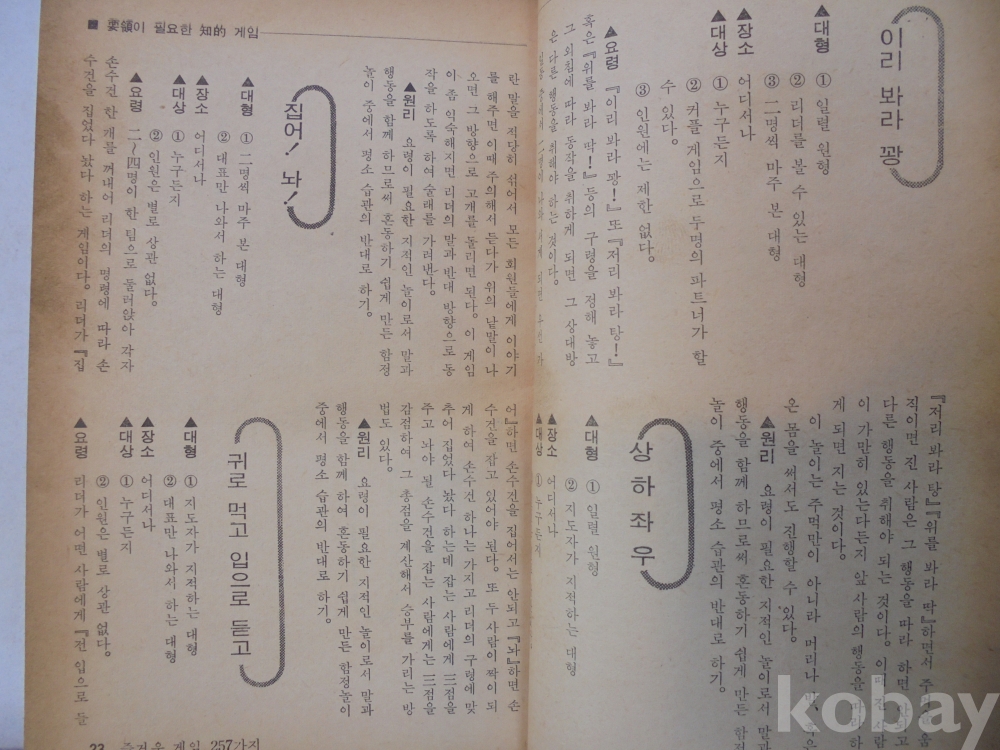 이리 봐라 꽝
▲대형 ① 일렬 원형
② 리더를 볼 수 있는 대형
③ 二명씩 마주 본 대형
▲장소 어디서나
▲대상 ① 누구든지
② 커플 게임으로 두명의 파트너가 할
수 있다.
③ 인원에는 제한 없다.
▲요령 『이리 봐라 꽝!』 또 『저리 봐라 탕!』
혹은 『위를 봐라 딱!』 등의 구령을 정해 놓고
그 외침에 따라 동작을 취하게 되면 그 상대방
은 다른 행동을 취해야 하는 것이다.
『저리 봐라 탕』 『위를 봐라 딱』 하면서
직이면 진 사람은 그 행동을 따라 하면
다른 행동을 취해야 되는 것이다.
이 가만히 있는다든지 앞 사람의 행동을 따라 하
게 되면 지는 것이다.
이 놀이는 주먹만이 아니라 머리나
온 몸을 써서도 진행할 수 있다.
▲원리 요령이 필요한 지적인 놀이로서 말과
행동을 함께 하므로써 혼동하기 쉽게 만든 함정
놀이 중에서 평소 습관의 반대로 하기.
상하좌우
▲대형 ① 일렬 원형
② 지도자가 지적하는 대형
▲장소 어디서나
▲대상 ① 누구든지
■ 要領이 필요한 知的 게임
란 말을 적당히 섞어서 모든 회원들에게 이야기
를 해주면 이때 주의해서 듣다가 위의 낱말이 나
오면 그 방향으로 고개를 돌리면 된다. 이 게임
이 좀 익숙해지면 리더의 말과 반대 방향으로 동
작을 하도록 하여 술래를 가려낸다.
▲원리 요령이 필요한 지적인 놀이로서 말과
행동을 함께 하므로써 혼동하기 쉽게 만든 함정
놀이 중에서 평소 습관의 반대로 하기.
집어! 놔!
▲대형 ① 二명씩 마주 본 대형
② 대표만 나와서 하는 대형
▲장소 어디서나
▲대상 ① 누구든지
② 인원은 별로 상관 없다.
▲요령 二~四명이 한 팀으로 둘러앉아 각자
손수건 한 개를 꺼내어 리더의 명령에 따라 손
수건을 집었다 놨다 하는 게임이다. 리더가 『집
어』하면 손수건을 집어서는 안되고 『놔』하면 손
수건을 잡고 있어야 된다. 또 두 사람이 짝이 되
게 하여 손수건 하나는 가지고 리더의 구령에 맞
추어 집었다 놨다 하는데 잡는 사람에게 三점을
주고 놔야 된 손수건을 잡는 사람에게는 三점을
감점하여 그 총점을 계산해서 승부를 가리는 방
법도 있다.
▲원리 요령이 필요한 지적인 놀이로서 말과
행동을 함께 하여 혼동하기 쉽게 만든 함정놀이
중에서 평소 습관의 반대로 하기.
귀로 먹고 입으로 듣고
▲대형 ① 지도자가 지적하는 대형
② 대표만 나와서 하는 대형
▲장소 어디서나
▲대상 ① 누구든지
② 인원은 별로 상관 없다.
▲요령 리더가 어떤 사람에게 『전 입으로 듣
23 즐거운 게임 257가지
kobay